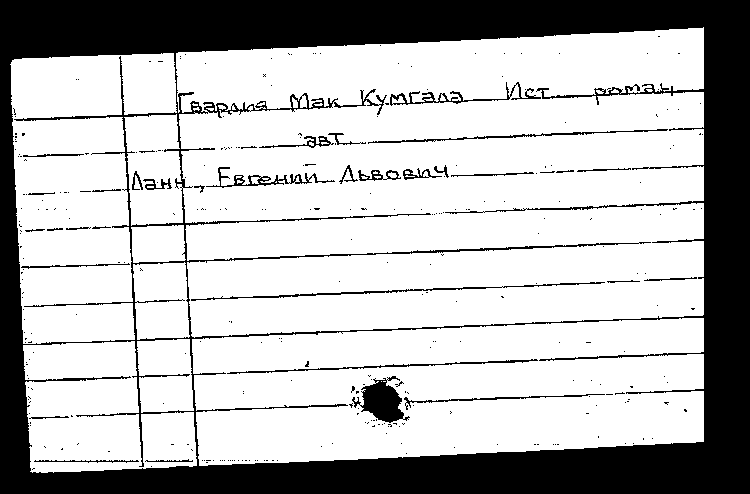 Гвардия Мак Кумгала Ист. роман
авт.
Ланн, Евгений Львович